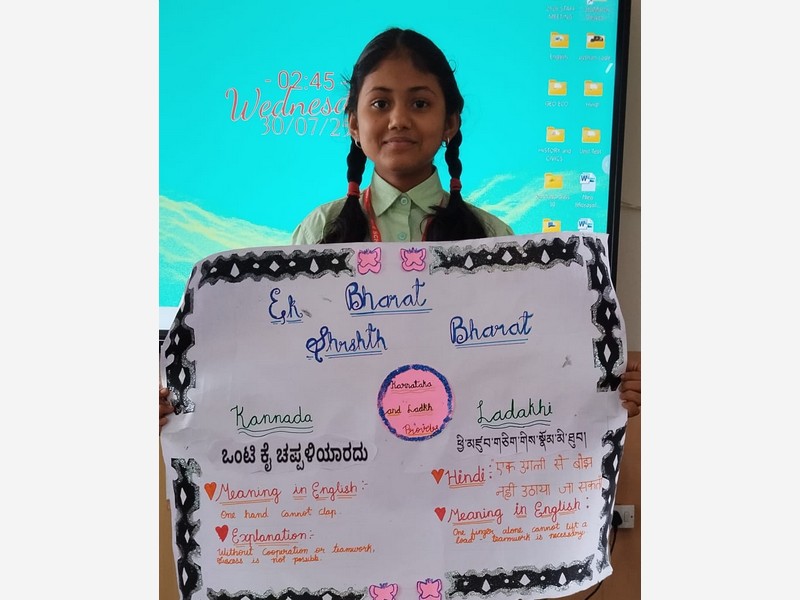 02:45
Wednesd
30/07/25
Ek Bharat
Shrshth Bharat
Karnataka
and Ladkh
Proverbs
Kannada
ಒಂಟಿ ಕೈ ಚಪ್ಪಳಿಯಾರದು
Meaning in English:-
One hand cannot clap.
Explanation:-
Without cooperation or teamwork,
success is not posible.
Ladakhi
ཕྱི་མཛུབ་གཅིག་གིས་སྣོམ་མི་ཐུབ།
Hindi: एक उंगली से बोझ
नहीं उठाया जा सकता
Meaning in English:
One finger alone cannot lift a
load - teamwork is necesstry.